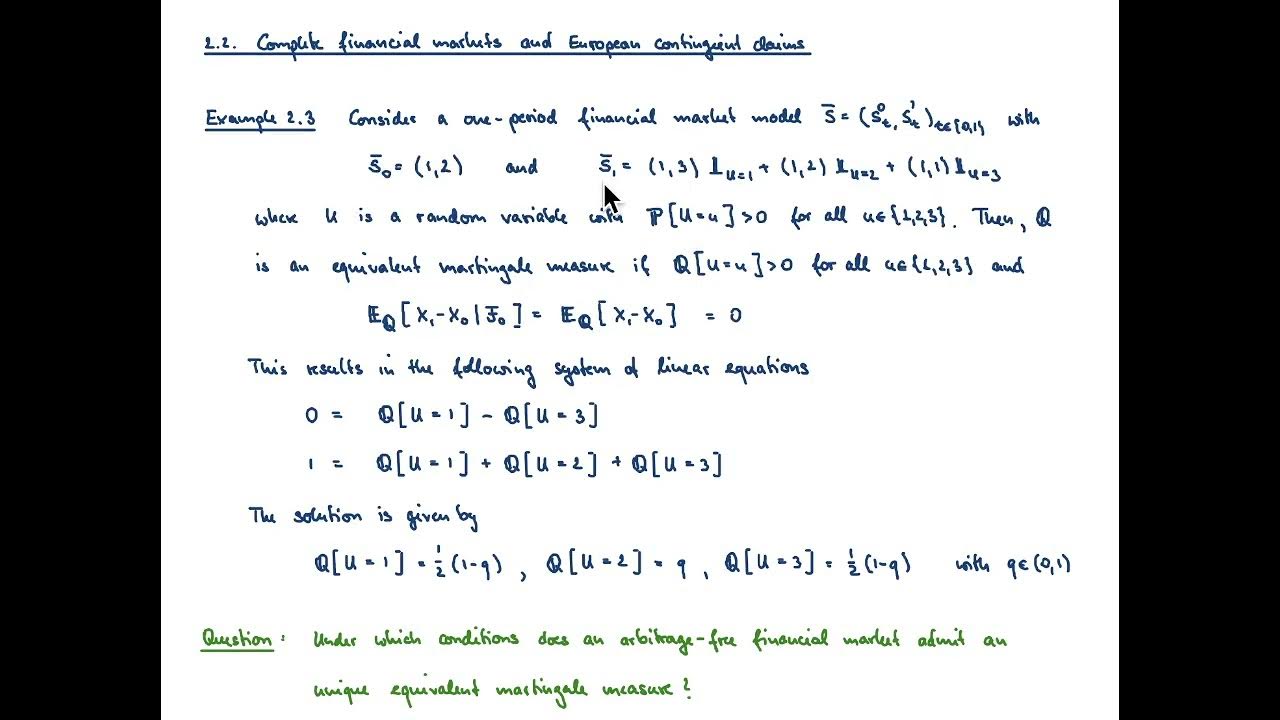 2.2. Complete financial markets and European contingient claims
Example 2.3 Consider a one-period financial market model S̄ = (S⁰ₜ, S¹ₜ)ₜ∈{0,1} with
S̄₀ = (1,2) and S̄₁ = (1,3) 𝟙ᵤ₌₁ + (1,2) 𝟙ᵤ₌₂ + (1,1) 𝟙ᵤ₌₃
where U is a random variable with ℙ[U=u] >0 for all u∈{1,2,3}. Then, ℚ
is an equivalent martingale measure if ℚ[U=u] >0 for all u∈{1,2,3} and
𝔼_ℚ[X₁-X₀|F₀] = 𝔼_ℚ[X₁-X₀] = 0
This results in the following system of linear equations
0 = ℚ[U=1] - ℚ[U=3]
1 = ℚ[U=1] + ℚ[U=2] + ℚ[U=3]
The solution is given by
ℚ[U=1] = ½(1-q), ℚ[U=2] = q, ℚ[U=3] = ½(1-q) with q∈(0,1)
Question: Under which conditions does an arbitrage-free financial market admit an
unique equivalent martingale measure?